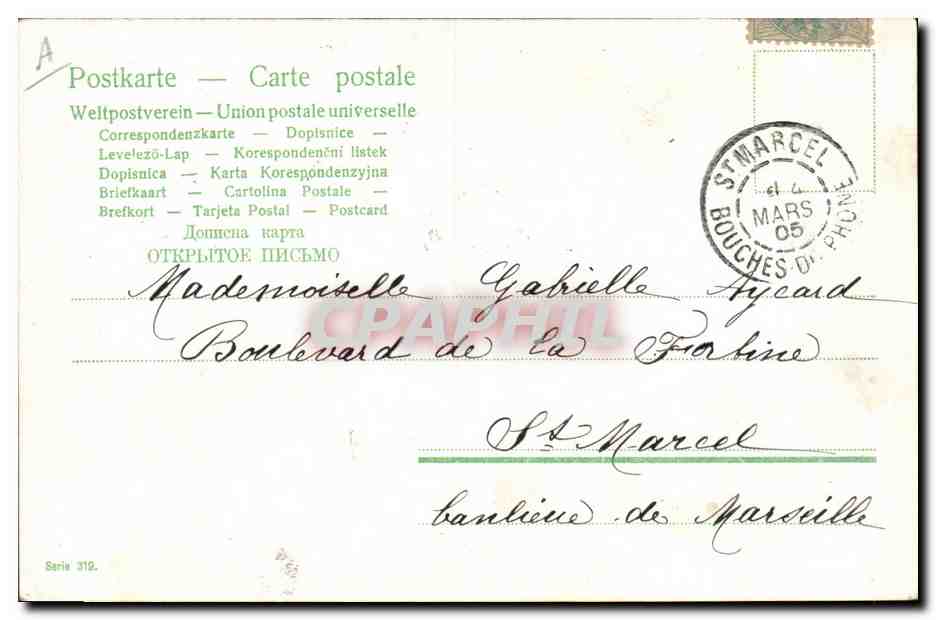 A
Postkarte — Carte postale
Weltpostverein — Union postale universelle
Correspondenzkarte — Dopisnice —
Levelező-Lap — Korespondenční listek
Dopisnica — Karta Korespondenzyjna
Briefkaart — Cartolina Postale —
Brefkort — Tarjeta Postal — Postcard
Дописна карта
ОТКРЫТОЕ ПИСЬМО
ST MARCEL
MARS
05
BOUCHES-DU-RHONE
Mademoiselle Gabrielle Aycard
CPAPHIL
Boulevard de la Fortine
St Marcel
banlieue de Marseille
Serie 319.